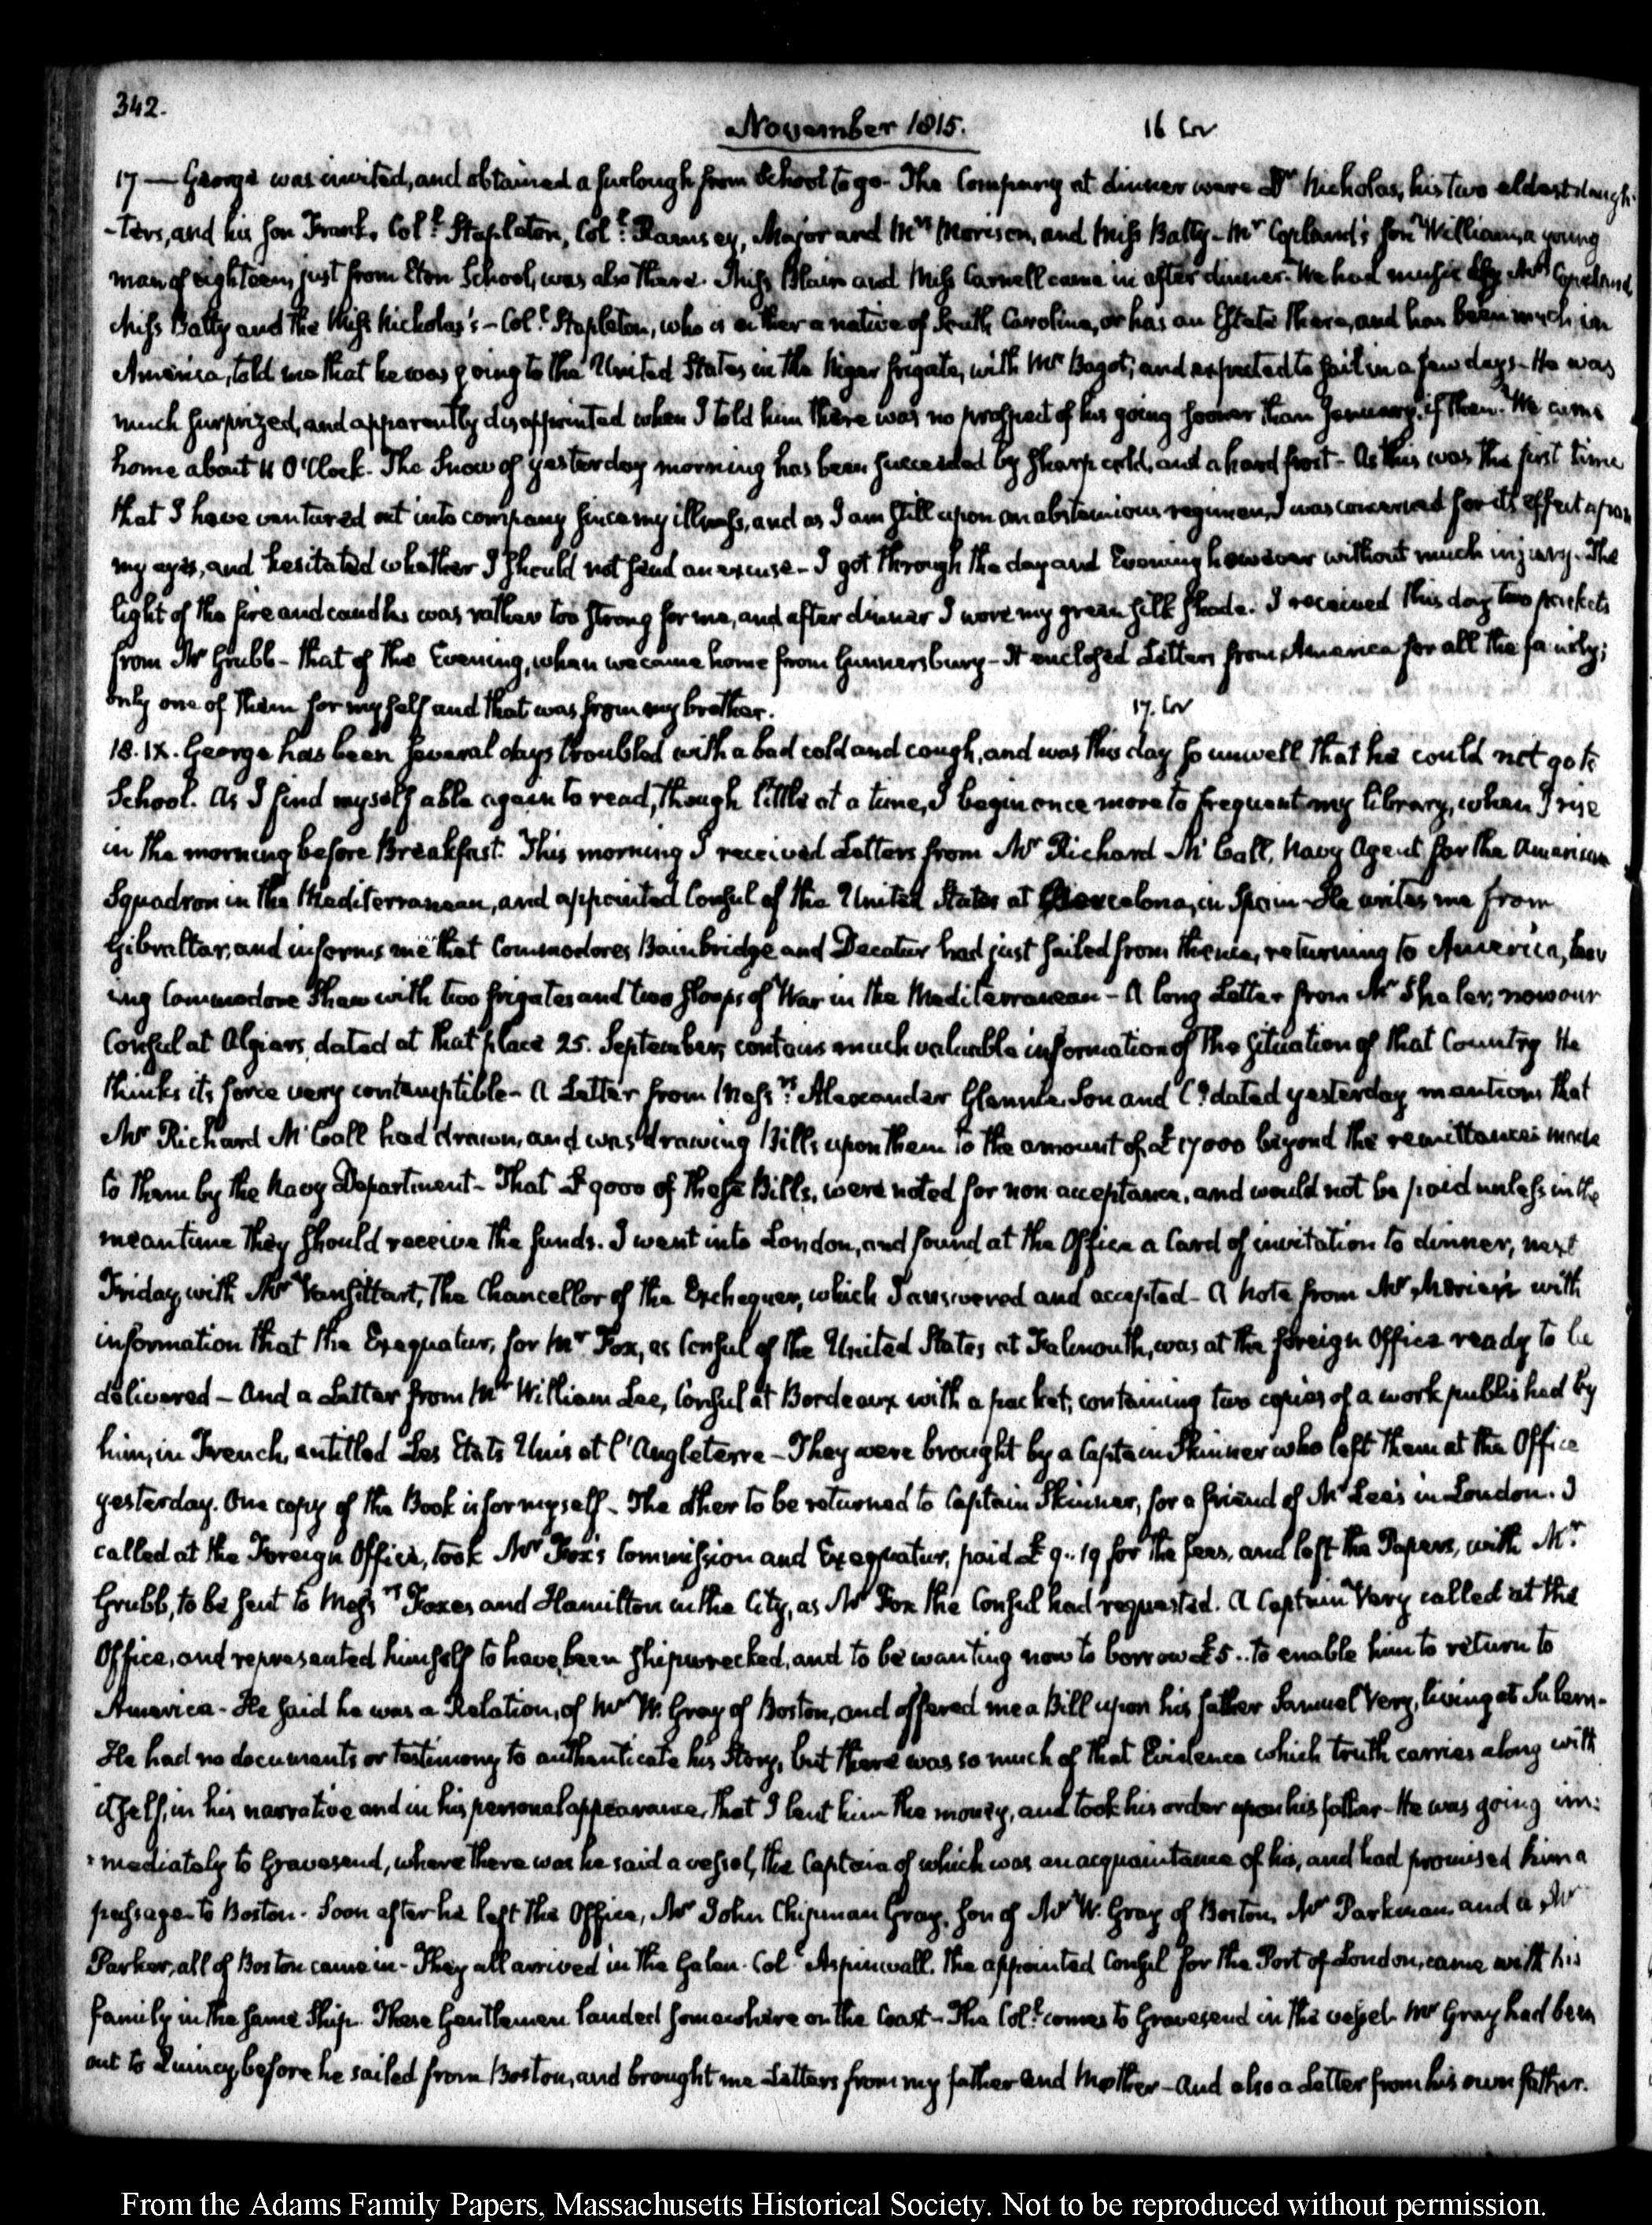 342.
November 1815.
16 Cov
17 — George was invited, and obtained a furlough from School to go. The Company at dinner were Dr Nicholas, his two eldest daugh-
-ters, and his son Frank, Coll. Stapleton, Coll. Ramsey, Major and Mrs Morison, and Miss Batty - Mr Copland's son William, a young
man of eighteen, just from Eton School, was also there. Miss Blain and Miss Carwell came in after dinner. We had music by Mrs Copeland
Miss Batty and the Miss Nicholas's - Coll. Stapleton, who is either a native of South Carolina, or has an Estate there, and has been much in
America, told me that he was going to the United States in the Niger frigate, with Mr Bagot; and expected to sail in a few days - He was
much surprized, and apparently disappointed when I told him there was no prospect of his going sooner than January, if then. We came
home about 11 O'Clock - The Snow of yesterday morning has been succeeded by sharp cold, and a hard frost - As this was the first time
that I have ventured out into company since my illness, and as I am still upon an abstemious regimen, I was concerned for its effect upon
my eyes, and hesitated whether I should not send an excuse - I got through the day and Evening however without much injury. The
light of the fire and candles was rather too strong for me, and after dinner I wore my green silk shade. I received this day two packets
from Mr Grubb - that of the Evening, when we came home from Gunnersbury - It enclosed Letters from America for all the family;
only one of them for myself and that was from my brother.
17. Cov
18. IX. George has been several days troubled with a bad cold and cough, and was this day so unwell that he could not go to
School. As I find myself able again to read, though little at a time, I begin once more to frequent my library, when I rise
in the morning before Breakfast. This morning I received Letters from Mr Richard McCall, Navy Agent for the American
Squadron in the Mediterranean, and appointed Consul of the United States at Barcelona, in Spain - He writes me from
Gibraltar, and informs me that Commodores Bainbridge and Decatur had just sailed from thence, returning to America, leav
ing Commodore Shaw with two frigates and two sloops of War in the Mediterranean - A long Letter from Mr Shaler, now our
Consul at Algiers, dated at that place 25. September, contains much valuable information of the situation of that Country. He
thinks its force very contemptible - A Letter from Messrs. Alexander Glennie, Son and Co. dated yesterday mentions that
Mr Richard McCall had drawn, and was drawing Bills upon them to the amount of £17000 beyond the remittances made
to them by the Navy Department - That £9000 of these Bills, were noted for non acceptance, and would not be paid unless in the
meantime they should receive the funds. I went into London, and found at the Office a Card of invitation to dinner, next
Friday, with Mr Vansittart, the Chancellor of the Exchequer, which I answered and accepted - A Note from Mr Morier with
information that the Exequatur, for Mr Fox, as Consul of the United States at Falmouth, was at the foreign Office ready to be
delivered - And a Letter from Mr William Lee, Consul at Bordeaux with a packet, containing two copies of a work published by
him, in French, entitled Les Etats Unis et l'Angleterre - They were brought by a Captain Skinner who left them at the Office
yesterday. One copy of the Book is for myself - The other to be returned to Captain Skinner, for a friend of Mr Lee's in London. I
called at the Foreign Office, took Mr Fox's Commission and Exequatur, paid £9..19 for the fees, and left the Papers, with Mr
Grubb, to be sent to Messrs Foxes and Hamilton in the City, as Mr Fox the Consul had requested. A Captain Very called at the
Office, and represented himself to have been shipwrecked, and to be wanting now to borrow £5.. to enable him to return to
America - He said he was a Relation, of Mr W. Gray of Boston, and offered me a Bill upon his father Samuel Very, living at Salem -
He had no documents or testimony to authenticate his Story, but there was so much of that Evidence which truth carries along with
itself, in his narrative and in his personal appearance, that I lent him the money, and took his order upon his father - He was going im:
:mediately to Gravesend, where there was he said a vessel, the Captain of which was an acquaintance of his, and had promised him a
passage to Boston. Soon after he left the Office, Mr John Chipman Gray, son of Mr W. Gray of Boston, Mr Parkman, and a Mr
Parker, all of Boston came in - They all arrived in the Galen. Coll. Aspinwall, the appointed Consul for the Port of London, came with his
family in the same Ship. These Gentlemen landed somewhere on the Coast - The Coll. comes to Gravesend in the vessel. Mr Gray had been
out to Quincy, before he sailed from Boston, and brought me Letters from my father and Mother - And also a Letter from his own father.
From the Adams Family Papers, Massachusetts Historical Society. Not to be reproduced without permission.